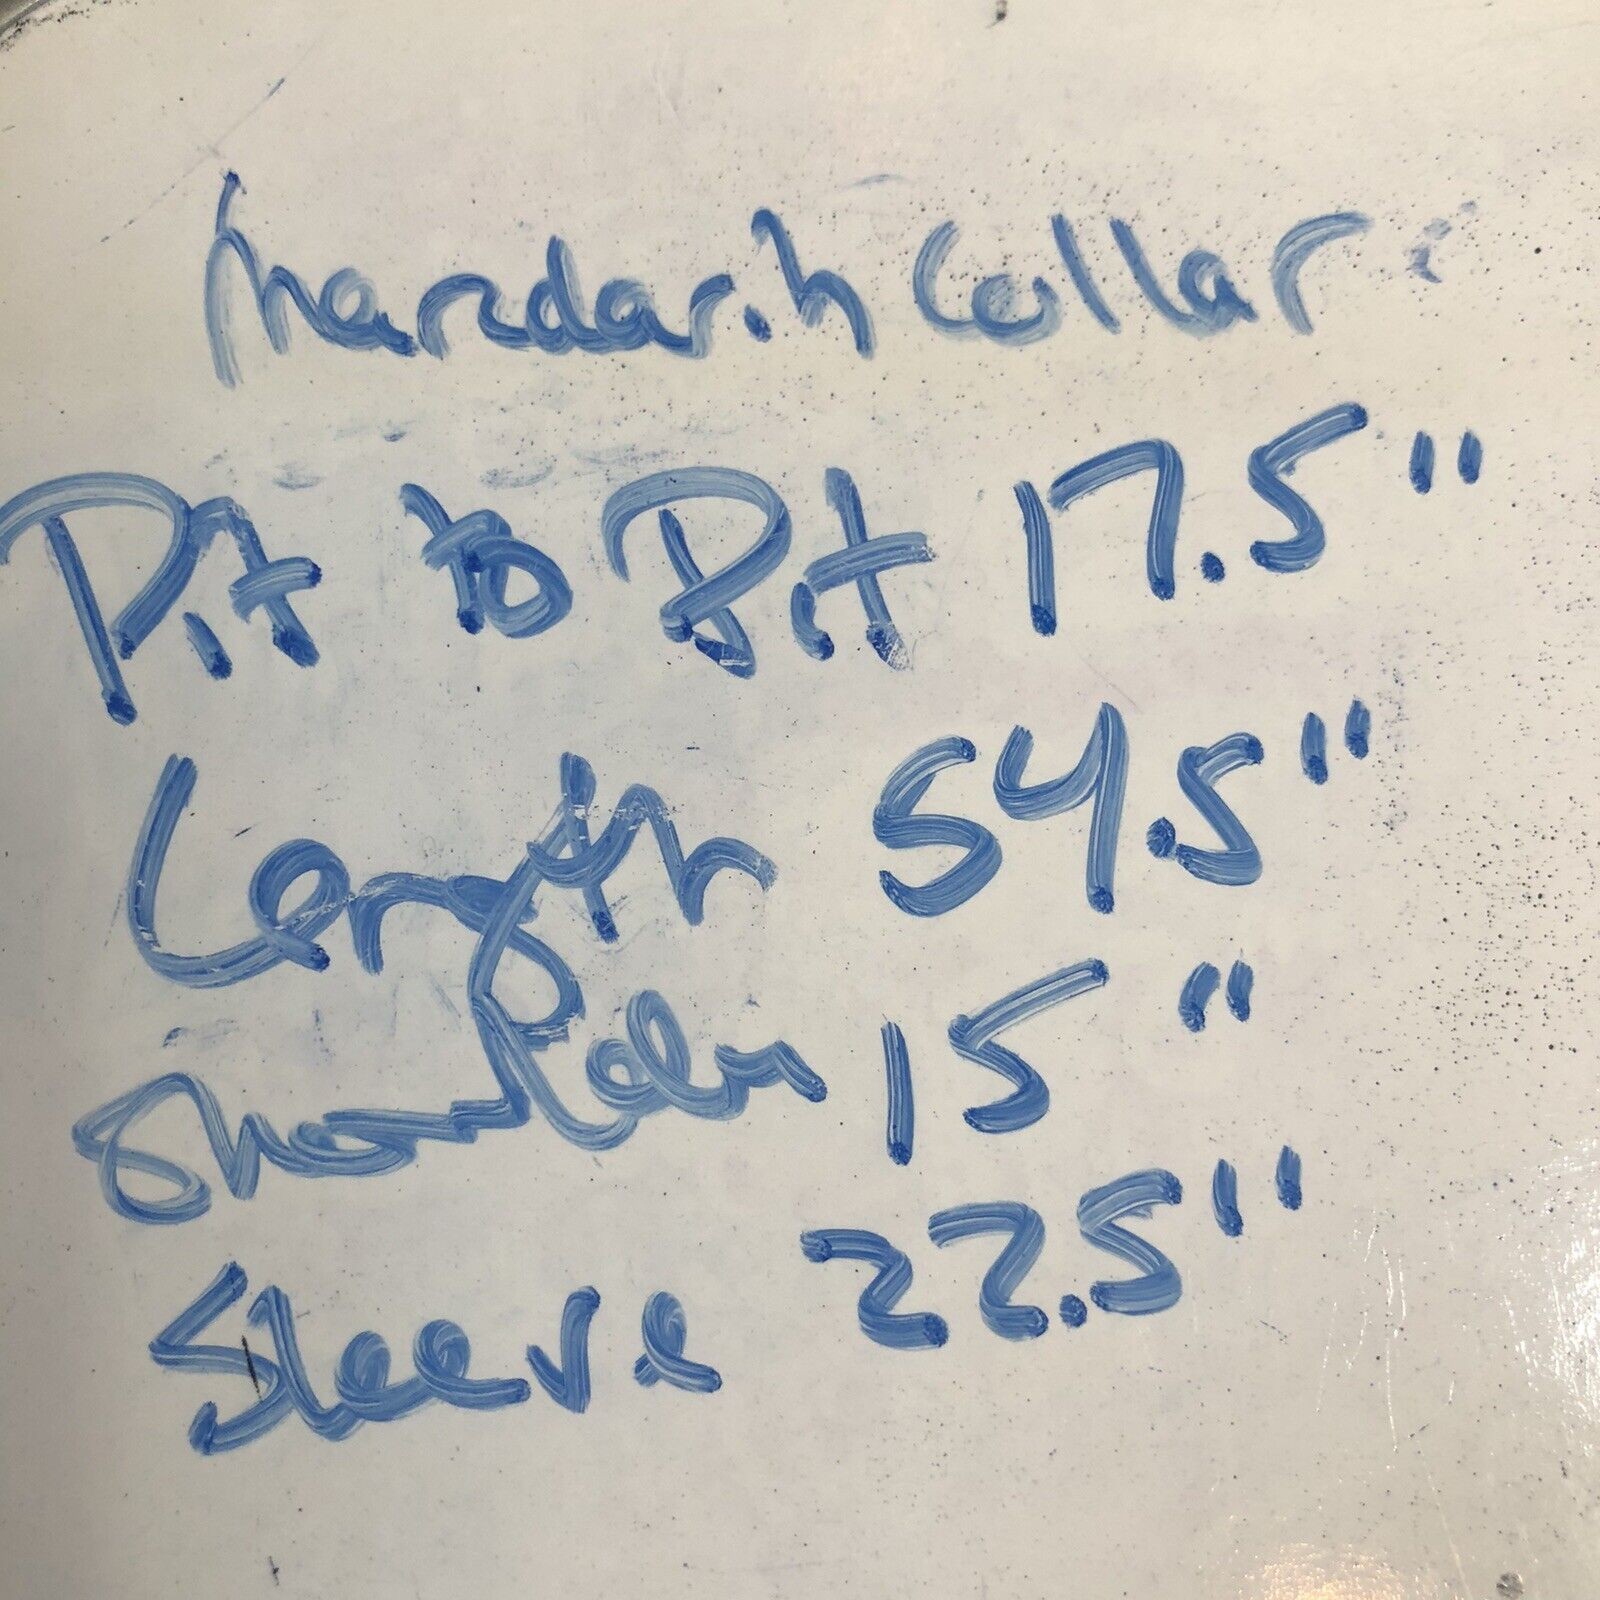 Mandarin Collar
Pit to Pit 17.5"
Length 54.5"
Shoulder 15"
Sleeve 22.5"